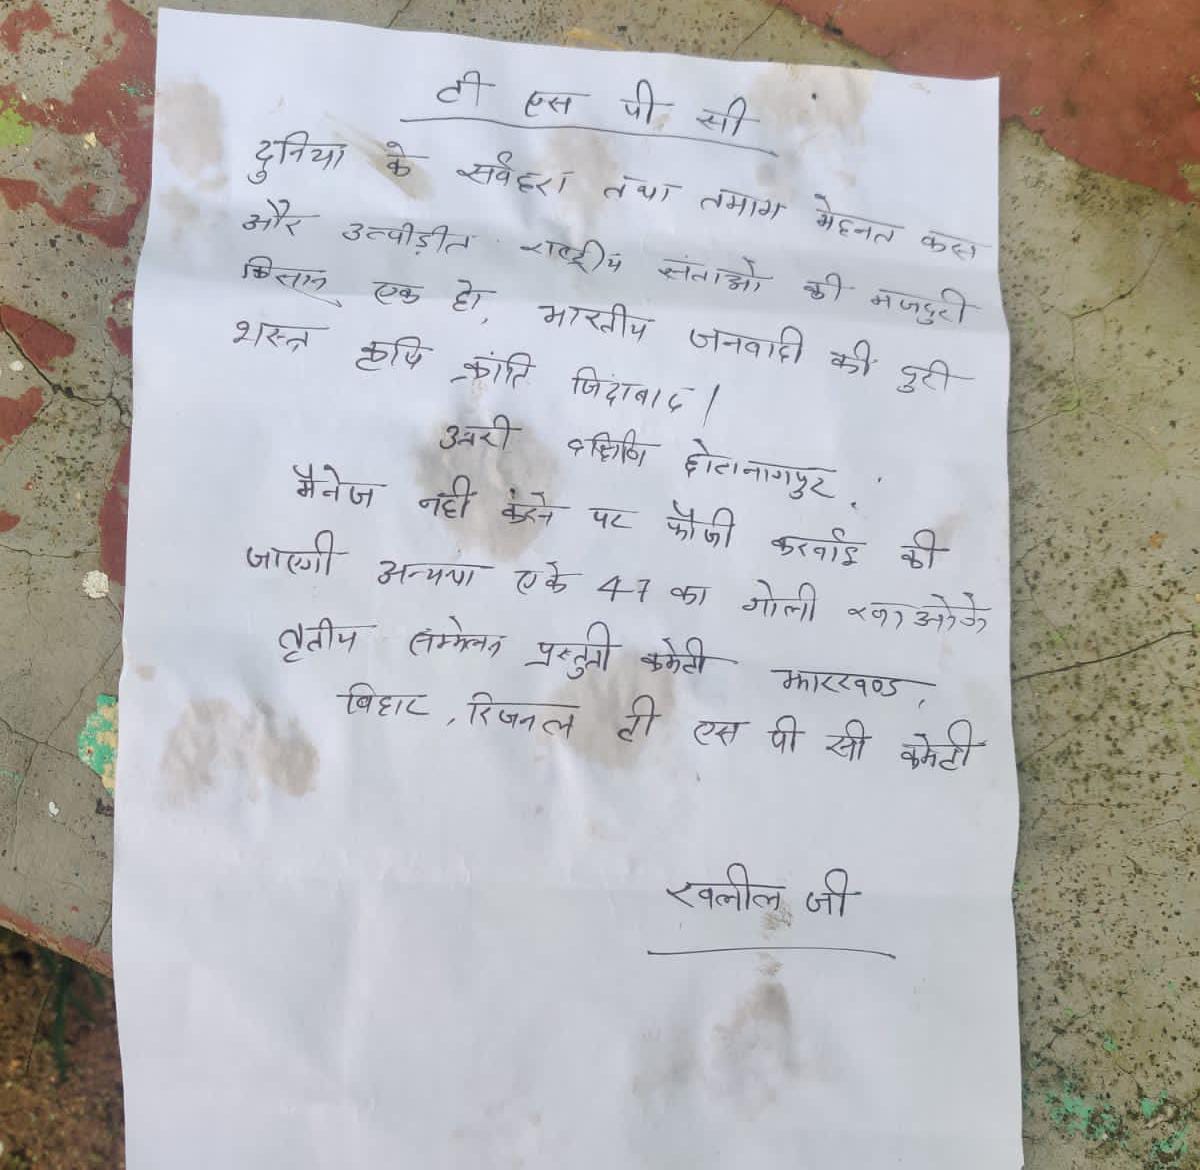 टी एस पी सी
दुनिया के सर्वहरा तथा तमाम मेहनत कस
और उत्पीड़ीत राष्ट्रीय संताओ की मजदुरी
किसान एक हो, भारतीय जनवादी की धुरी
शस्त्र कृषि क्रांति जिंदाबाद /
उतरी दक्षिणि छोटानागपुर .
मैनेज नही करने पर फौजी करर्वाइ की
जाएगी अन्यथा एके 47 का गोली खाओके
तृतीय सम्मेलन प्रस्तुती कमेटी झारखण्ड,
बिहार, रिजनल टी एस पी सी कमेटी
खलील जी